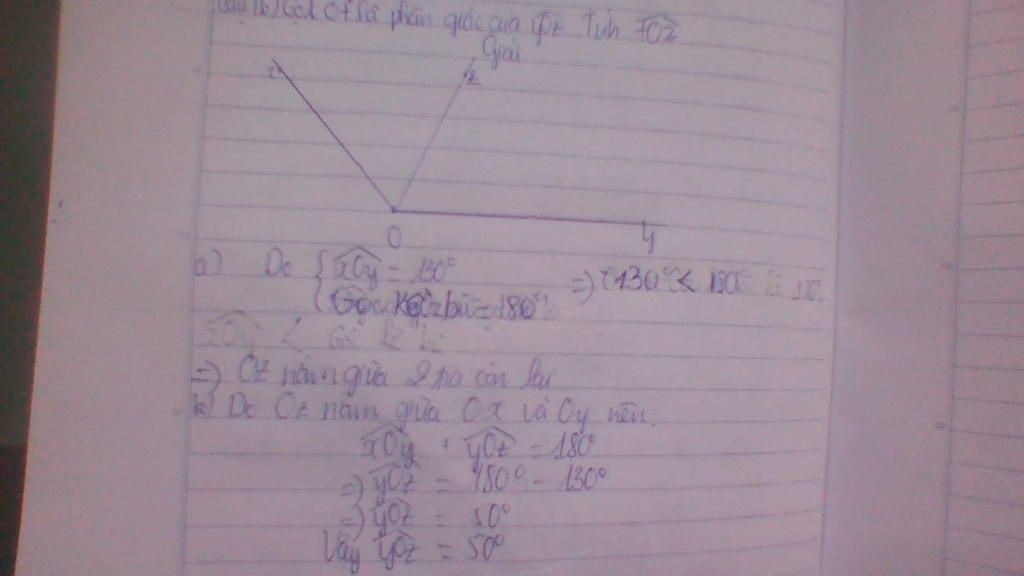 b) Gọi Ot là phân giác của yOz Tính tOz
Giải
z
O
y
a) Do { xOy = 130°
=> 130° < 180°
Góc kề bù = 180°
xOy < Góc kề bù
=> Oz nằm giữa 2 tia còn lại
b) Do Oz nằm giữa Ox và Oy nên.
xOy + yOz = 180°
=> yOz = 180° - 130°
=> yOz = 50°
Vậy yOz = 50°